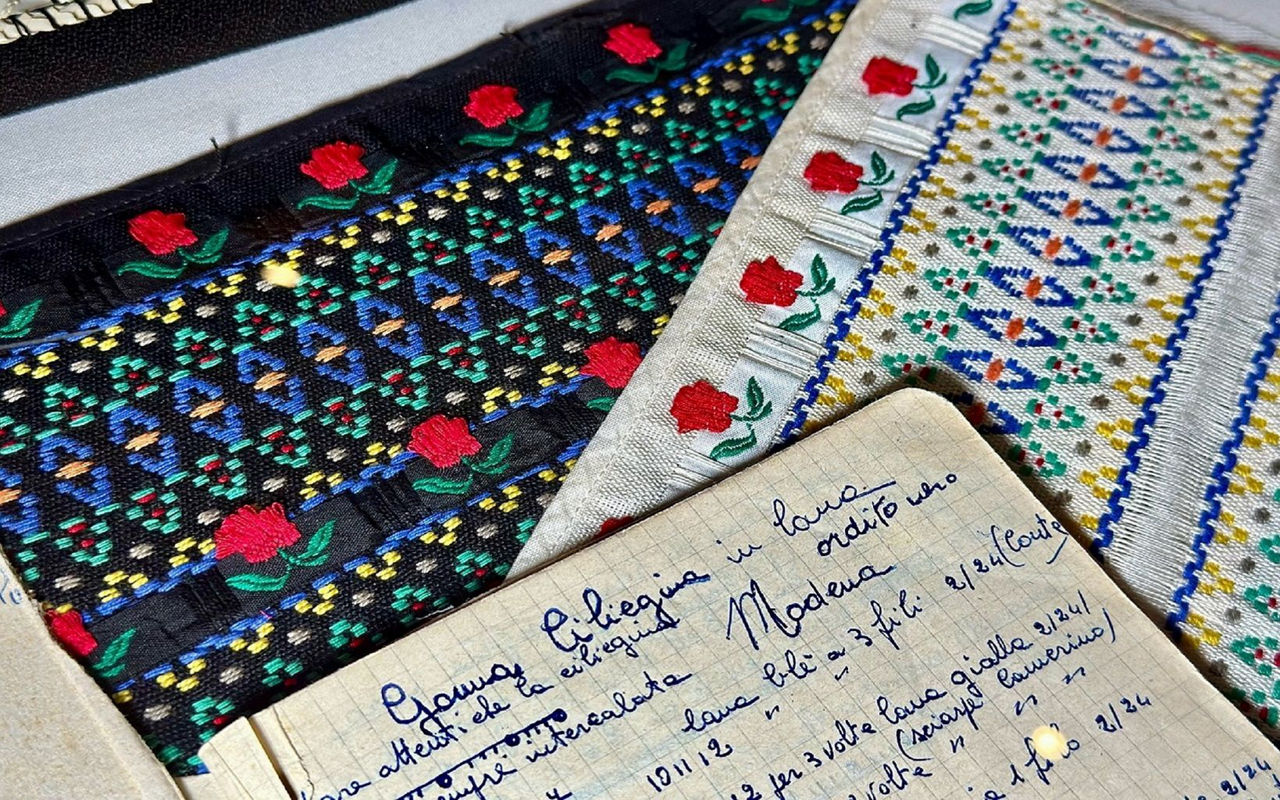 Gonna Ciliegina in lana
ordito nero
attenti che la ciliegina Modena
sempre intercalata
lana blè a 3 fili 2/24 (Conte
10 11 12 " "
2 per 3 volte lana gialla 2/24/
volte (sciarpe Camerino)
" " "
1 filo 2/24
2/24